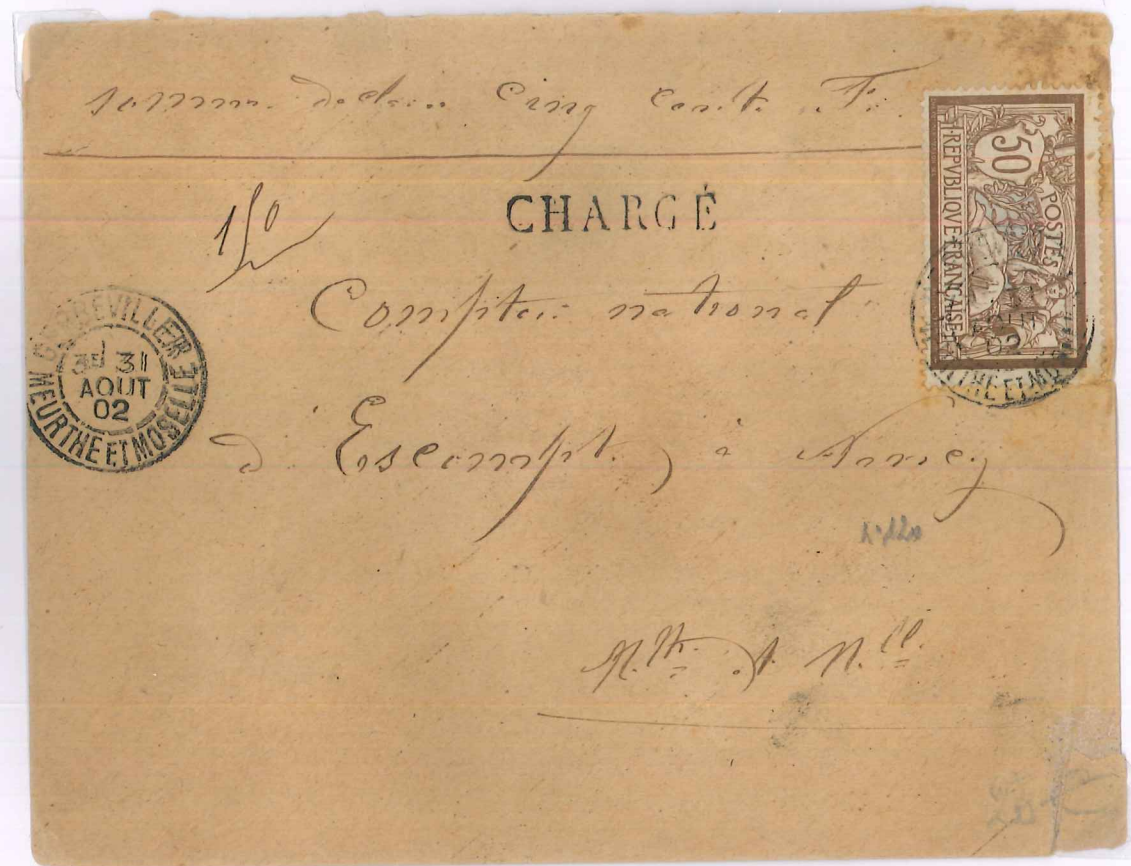 cinq cent F.
50
POSTES
REPVBLIQVE FRANÇAISE
CHARGÉ
150
Comptoir national
GERBEVILLER
31
AOUT
02
MEURTHE ET MOSELLE
d'Escompt. à Nancy
Mthe et Mlle